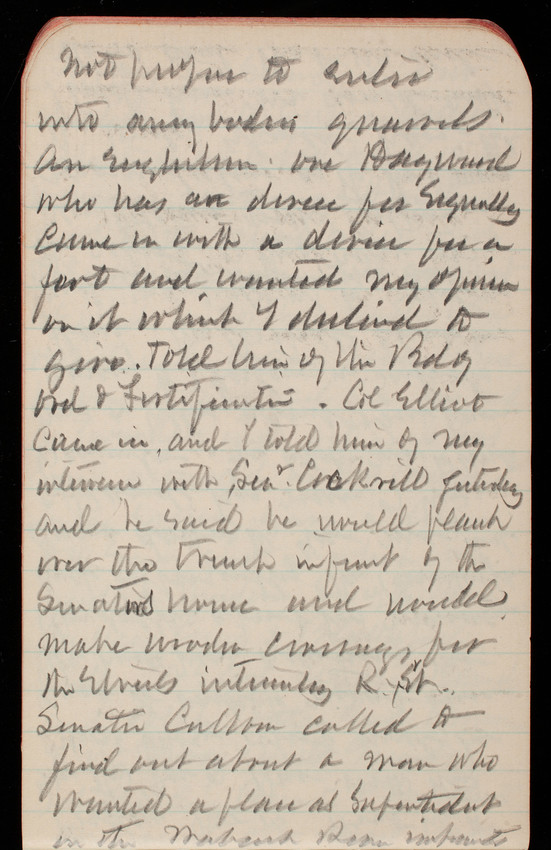 not proper to enter
into any bodies quarrels.
An Englishman one Hayward
who has a device for
Came in with a device for a
fort and wanted my opinion
on it which I declined to
give. Told him of the Bd of
Ord & Fortification. Col Elliot
came in, and I told him of my
interview with Senr. Cockrell yesterday
and he said he would plank
over the trench in front of the
Senators house and would
make wooden crossings for
the streets intersecting R. St.
Senator Cullom called to
find out about a man who
wanted a place as Superintendent
in the River improvements